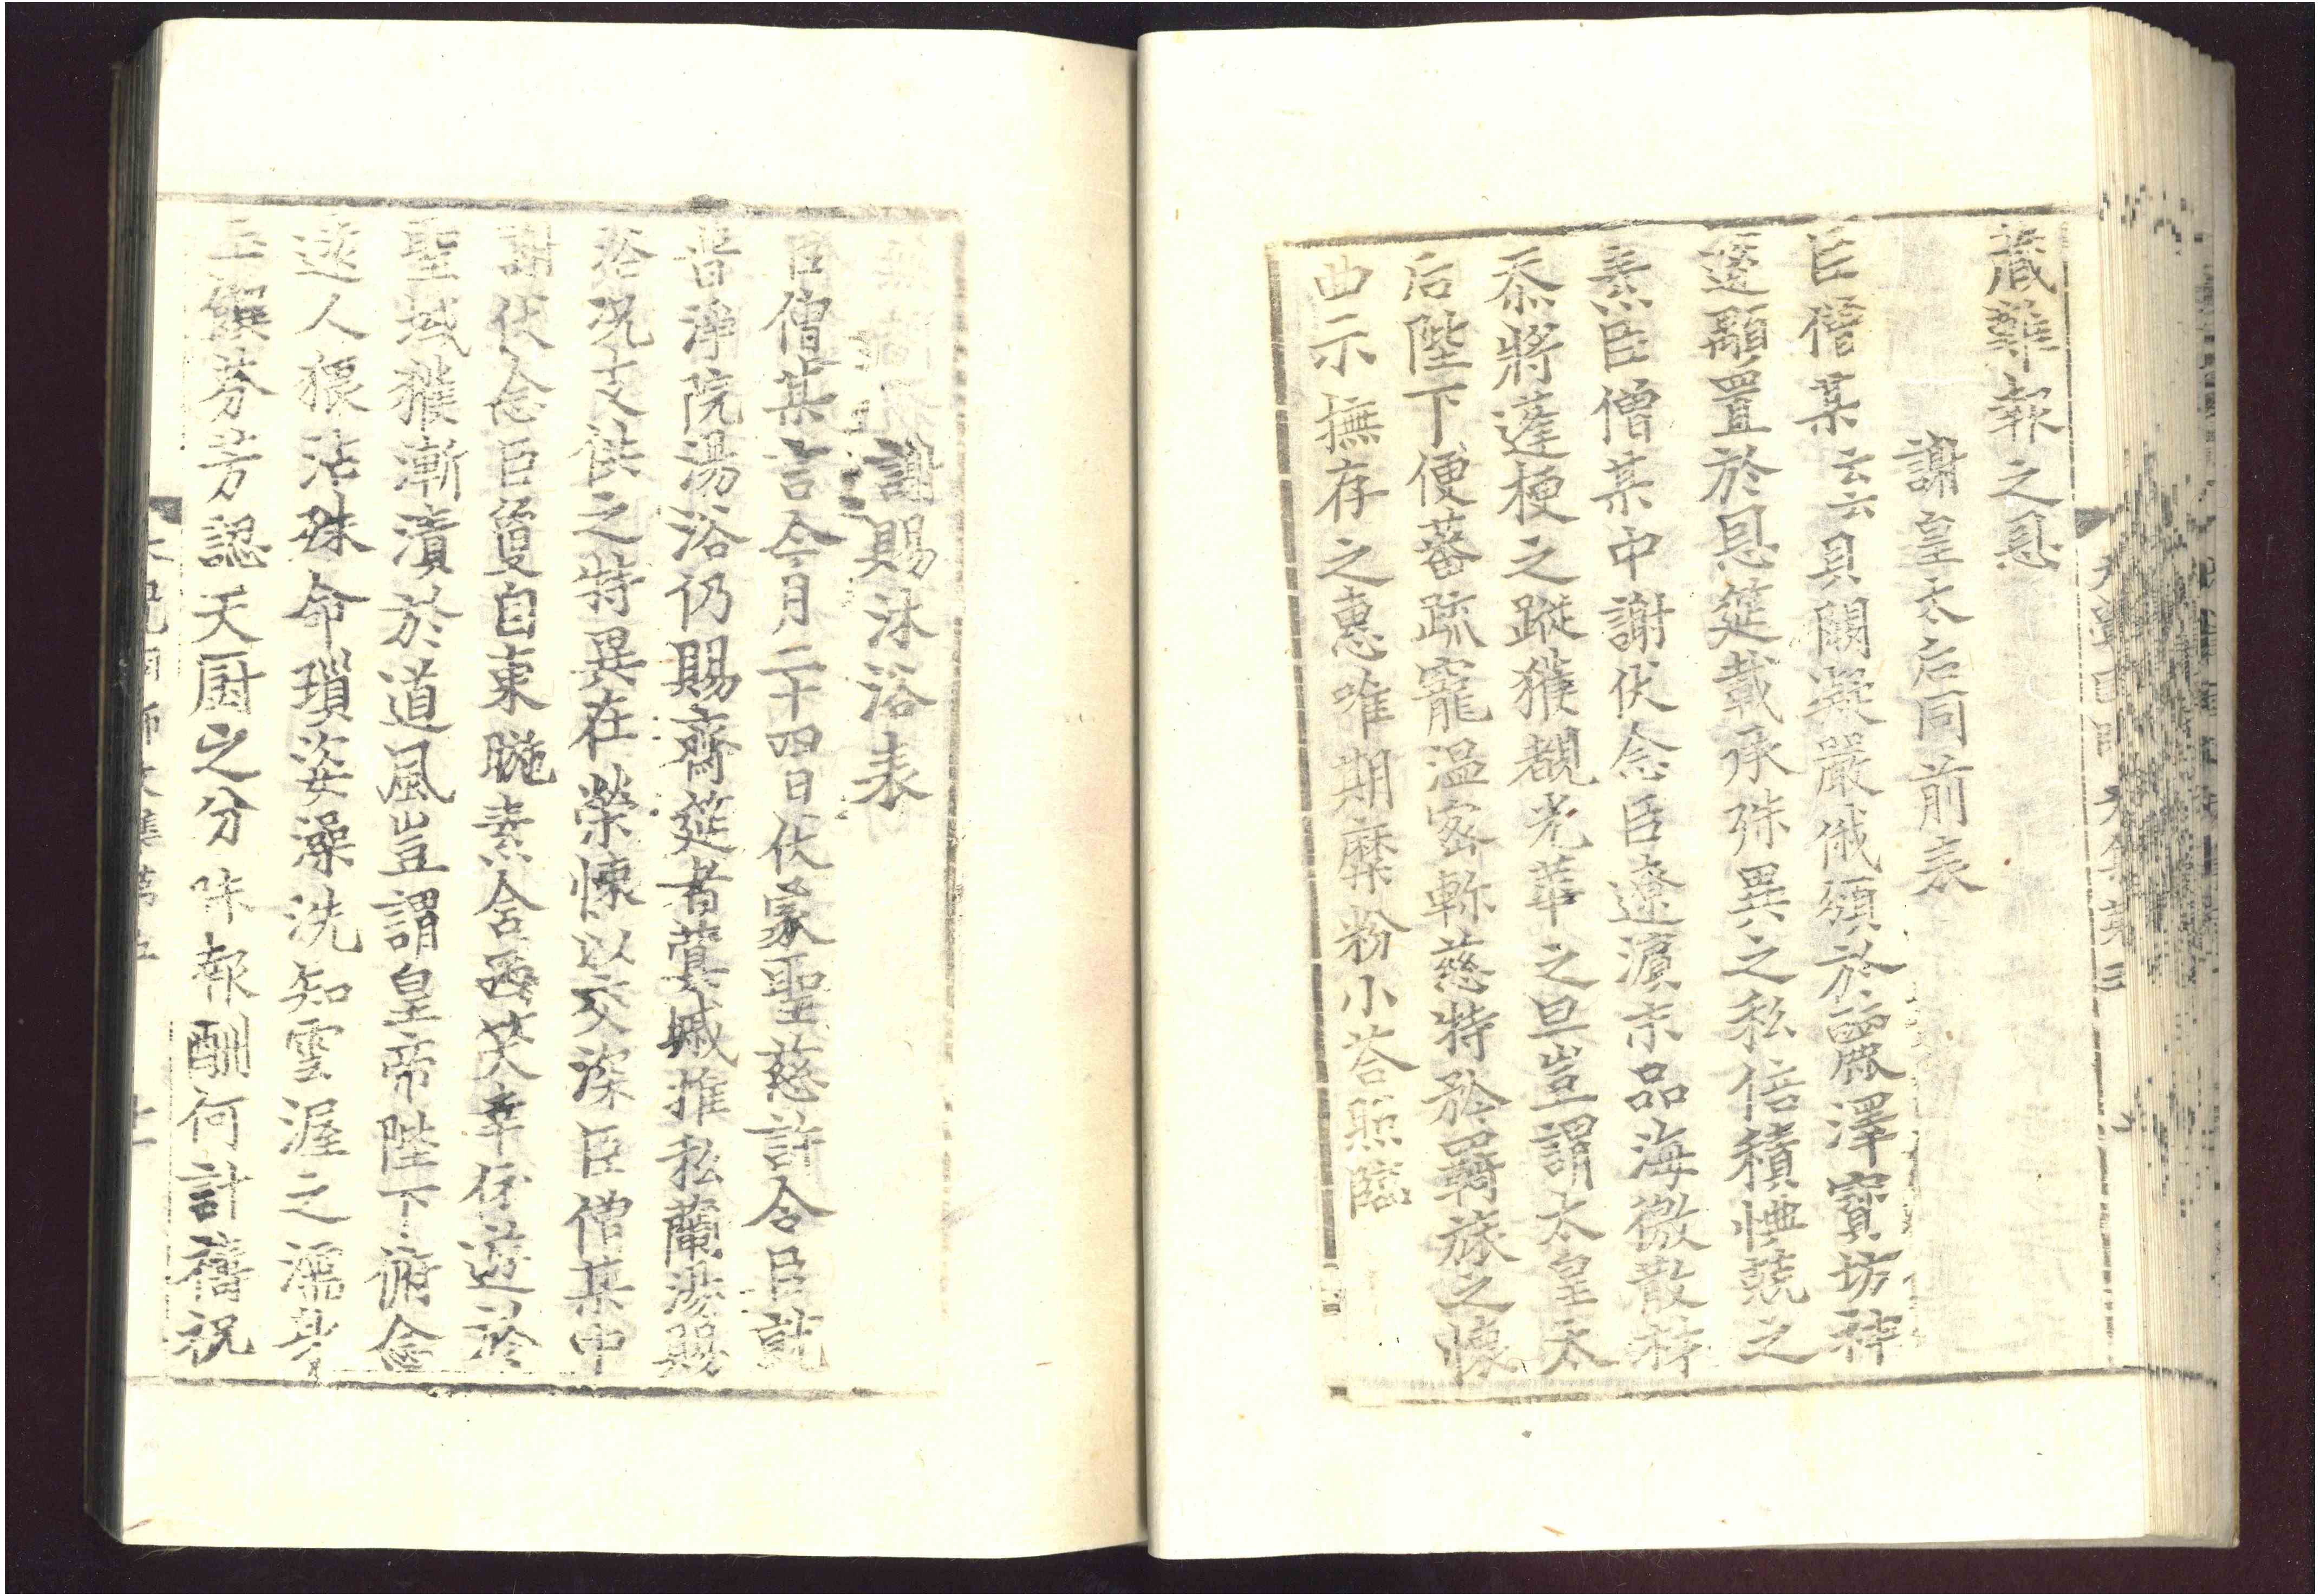 藏難報之恩
謝皇太后同前表
臣僧某云云貝闕凝嚴俄頒於麗澤寶坊
邃顯置於恩筵載承殊異之私倍積兢之
素臣僧某中謝伏念臣遼濱末品海微散材
忝將蓬梗之蹤獲覩光華之旦豈謂太皇太
后陛下便蕃疏寵溫密軫慈特於羈旅之懷
曲示撫存之惠唯期糜粉小荅照臨
謝賜沐浴表
臣僧某言今月二十四日伏蒙聖慈許令臣就
普淨院湯浴仍賜齋筵者蕢域推私蘭湯賜
浴況丈供之特異在榮悚以交深臣僧某中
謝伏念臣自東睡素含西笑幸仔遊於
聖域獲漸漬於道風豈謂皇帝陛下俯念
遠人猥沾殊命瑣姿澡洗知雲渥之濡身
玉饌芬芳認天厨之分味報酬何計禱祝